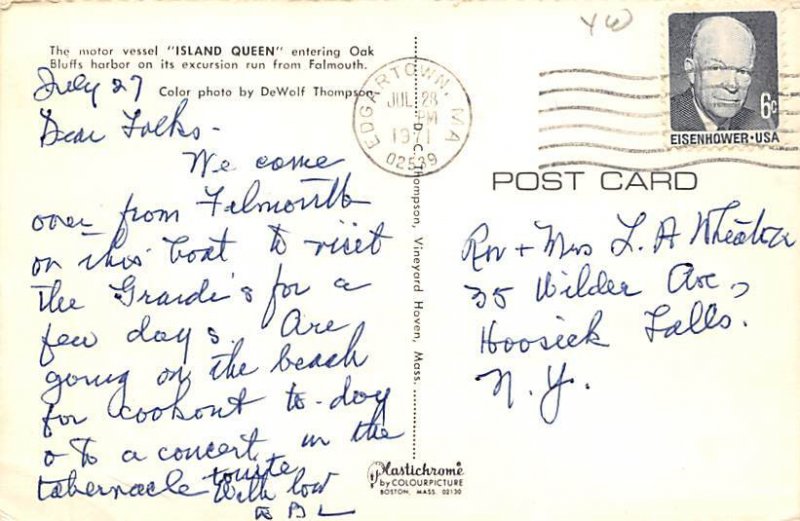 The motor vessel "ISLAND QUEEN" entering Oak
Bluffs harbor on its excursion run from Falmouth.
Color photo by DeWolf Thompson
July 27
Dear Folks -
We come
over from Felmouth
on this boat to visit
the Grande's for a
few days. Are
going on the beach
for cookout to-day
to a concert in the
tabernacle tonite
With love
B L
EDGARTOWN, MA
JUL 28
PM
1971
02539
D. C. Thompson, Vineyard Haven, Mass.
Plastichrome
by COLOURPICTURE
BOSTON, MASS. 02130
YW
6c
EISENHOWER·USA
POST CARD
Rev + Mrs L. A
35 Wilder Ave,
Hoosick Falls.
N. Y.